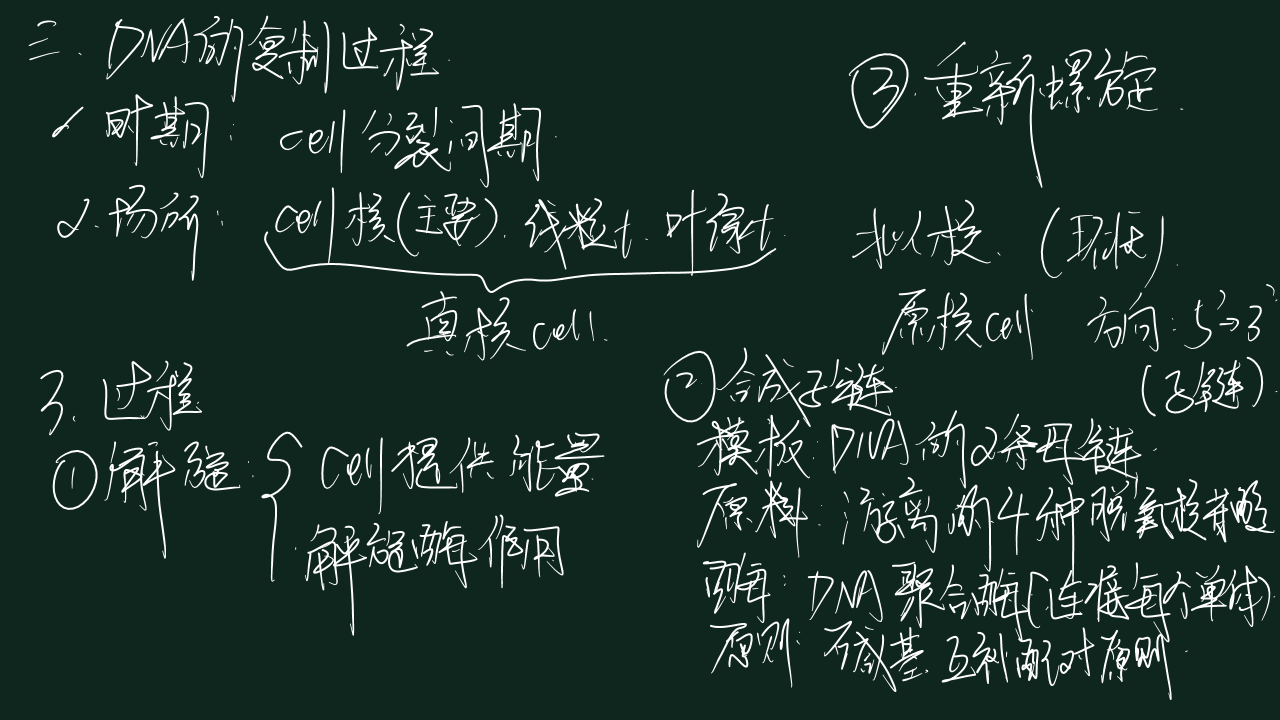 三. DNA的复制过程
1. 时期: cell分裂间期.
2. 场所: cell核(主要). 线粒t. 叶绿t.
真核cell.
拟核. (环状).
原核cell
3. 过程
①解旋: { cell提供能量
解旋酶作用
②合成子链.
方向: 5'→3'
(子链)
模板: DNA的2条母链.
原料: 游离的4种脱氧核苷酸
酶: DNA聚合酶(连接每个单体)
原则: 碱基互补配对原则.
③. 重新螺旋.